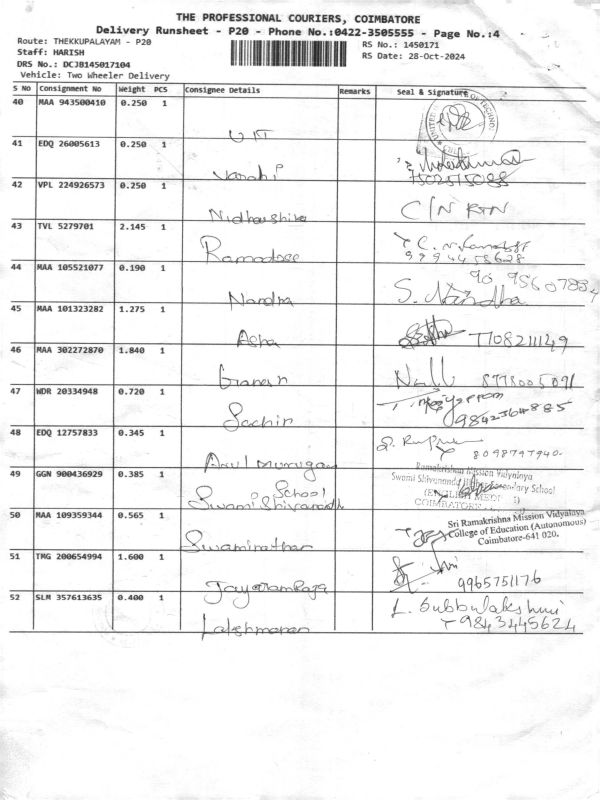 THE PROFESSIONAL COURIERS, COIMBATORE
Delivery Runsheet - P20 - Phone No.:0422-3505555 - Page No.:4
Route: THEKKUPALAYAM - P20
RS No.: 1450171
Staff: HARISH
RS Date: 28-Oct-2024
DRS No.: DCJB145017104
Vehicle: Two Wheeler Delivery
S No Consignment No Weight PCS Consignee Details Remarks Seal & Signature
40 MAA 943500410 0.250 1
UIT
41 EDQ 26005613 0.250 1
Varahi 7502515088
42 VPL 224926573 0.250 1
Nidharshika C/N RTN
43 TVL 5279701 2.145 1
Ramadose 9994458628
44 MAA 105521077 0.190 1
Nandha S. Nandha
45 MAA 101323282 1.275 1
Asha 7708211149
46 MAA 302272870 1.840 1
Ganesh 8778005091
47 WDR 20334948 0.720 1
Sachin 9842364885
48 EDQ 12757833 0.345 1
Arul murugan 8098797940
49 GGN 900436929 0.385 1
School
Swami Shivananda
Ramakrishna Mission Vidyalaya
Swami Shivananda Secondary School
COIMBATORE
50 MAA 109359344 0.565 1
Swaminathan
Sri Ramakrishna Mission Vidyalaya
College of Education (Autonomous)
Coimbatore-641 020.
51 TMG 200654994 1.600 1
Jayaramraja 9965751176
52 SLM 357613635 0.400 1
Lakshmanan L. Subbulakshmi
9843445624